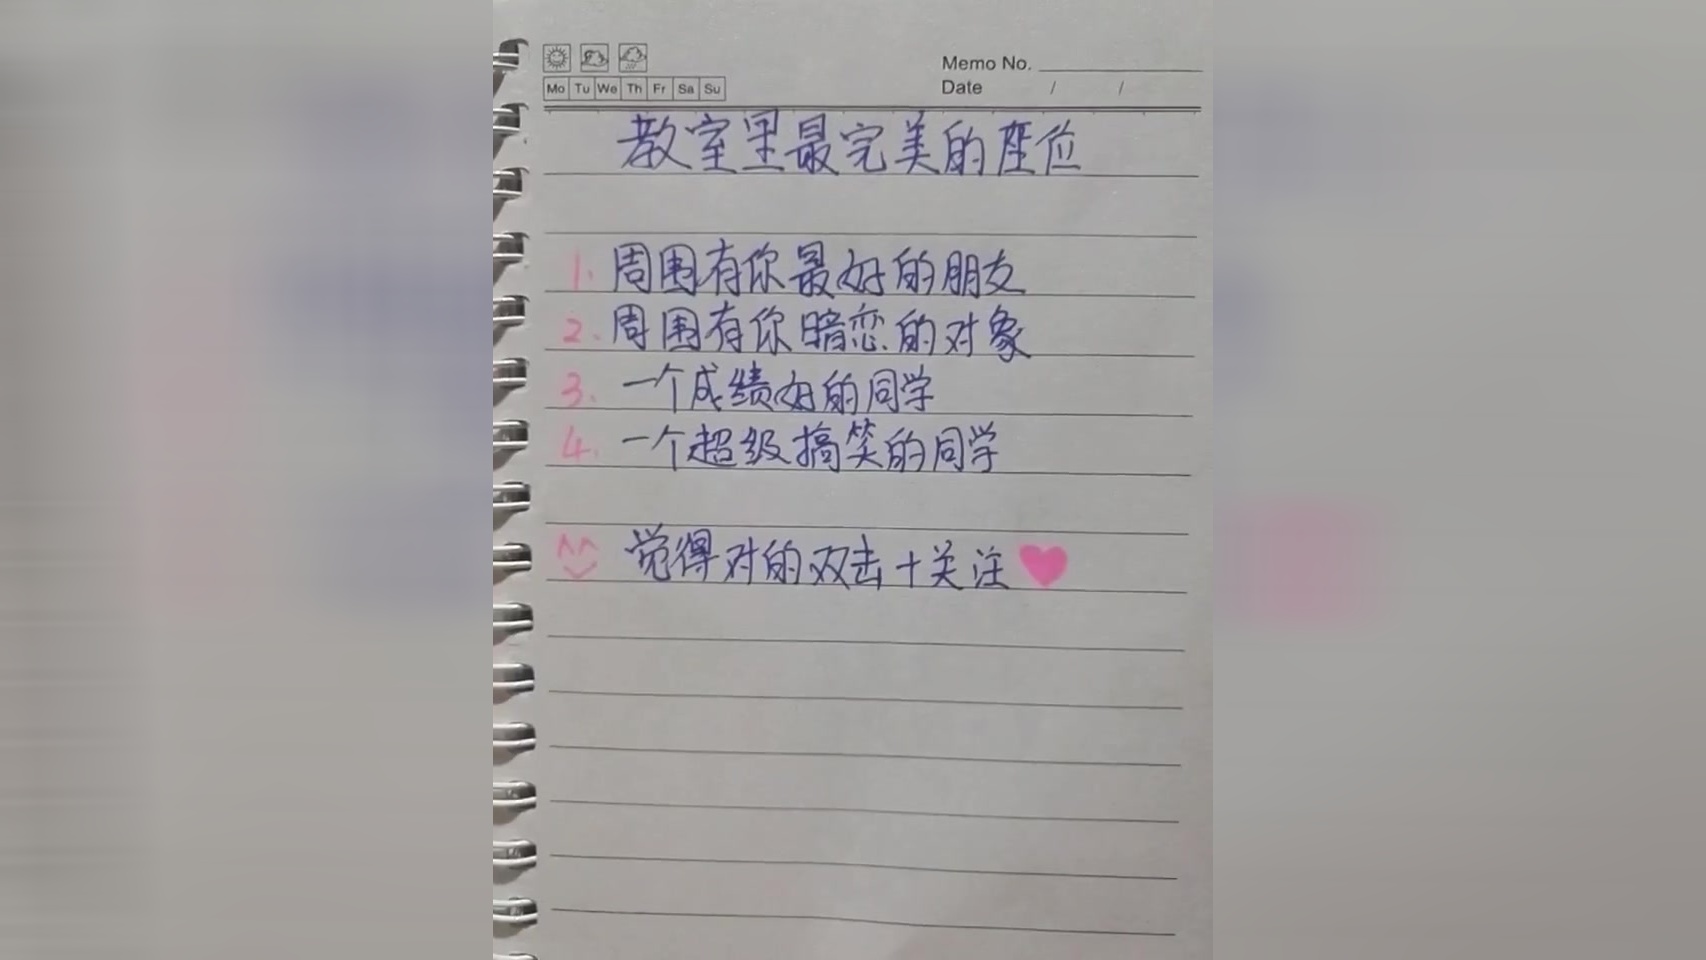 Memo No.
Mo Tu We Th Fr Sa Su
Date / /
教室里最完美的座位
1. 周围有你最好的朋友
2. 周围有你暗恋的对象
3. 一个成绩好的同学
4. 一个超级搞笑的同学
觉得对的双击+关注